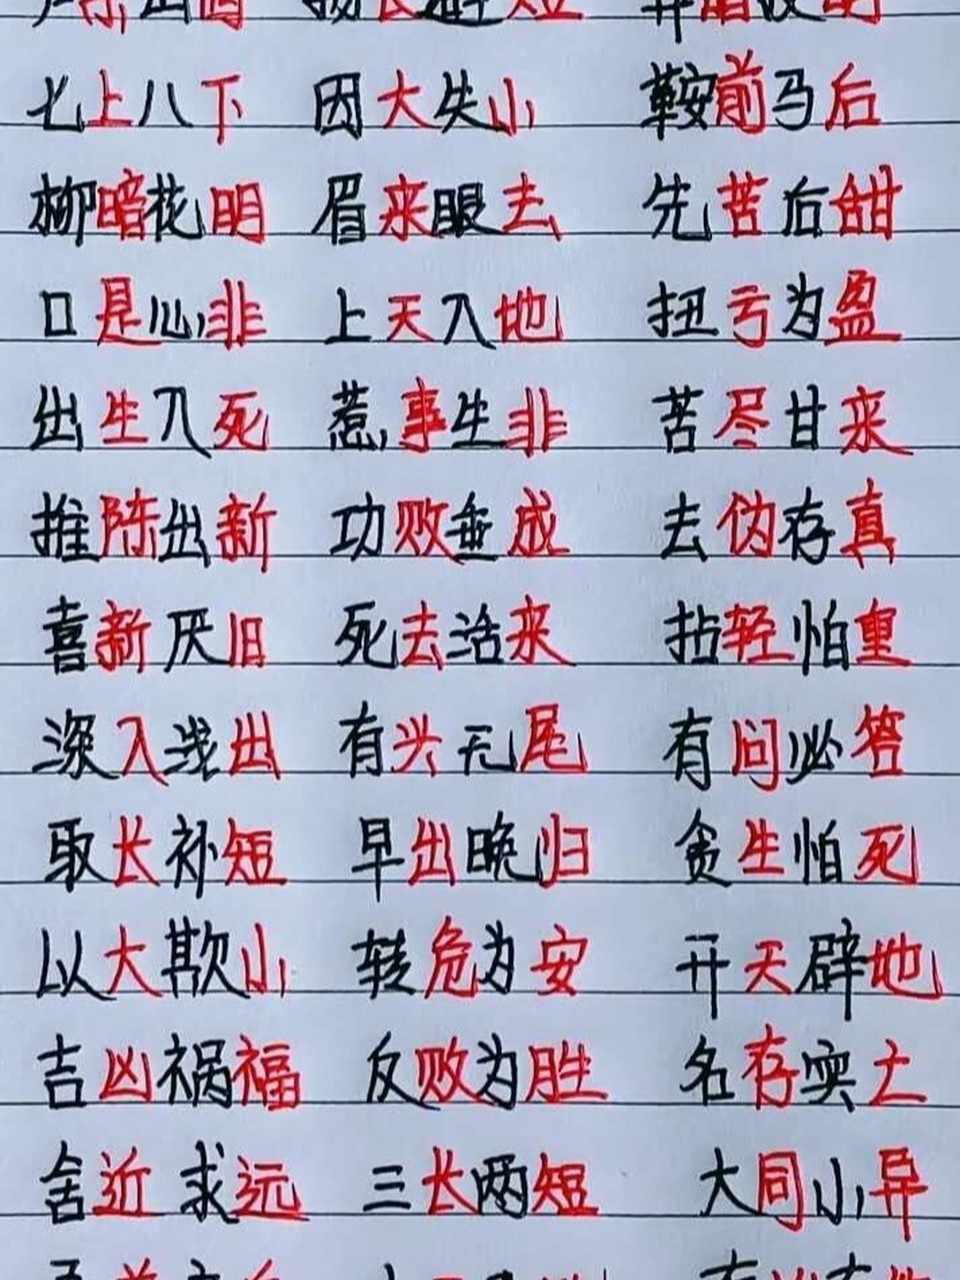 七上八下 因大失小 鞍前马后
柳暗花明 眉来眼去 先苦后甜
口是心非 上天入地 扭亏为盈
出生入死 惹事生非 苦尽甘来
推陈出新 功败垂成 去伪存真
喜新厌旧 死去活来 拈轻怕重
深入浅出 有头无尾 有问必答
取长补短 早出晚归 贪生怕死
以大欺小 转危为安 开天辟地
吉凶祸福 反败为胜 名存实亡
舍近求远 三长两短 大同小异